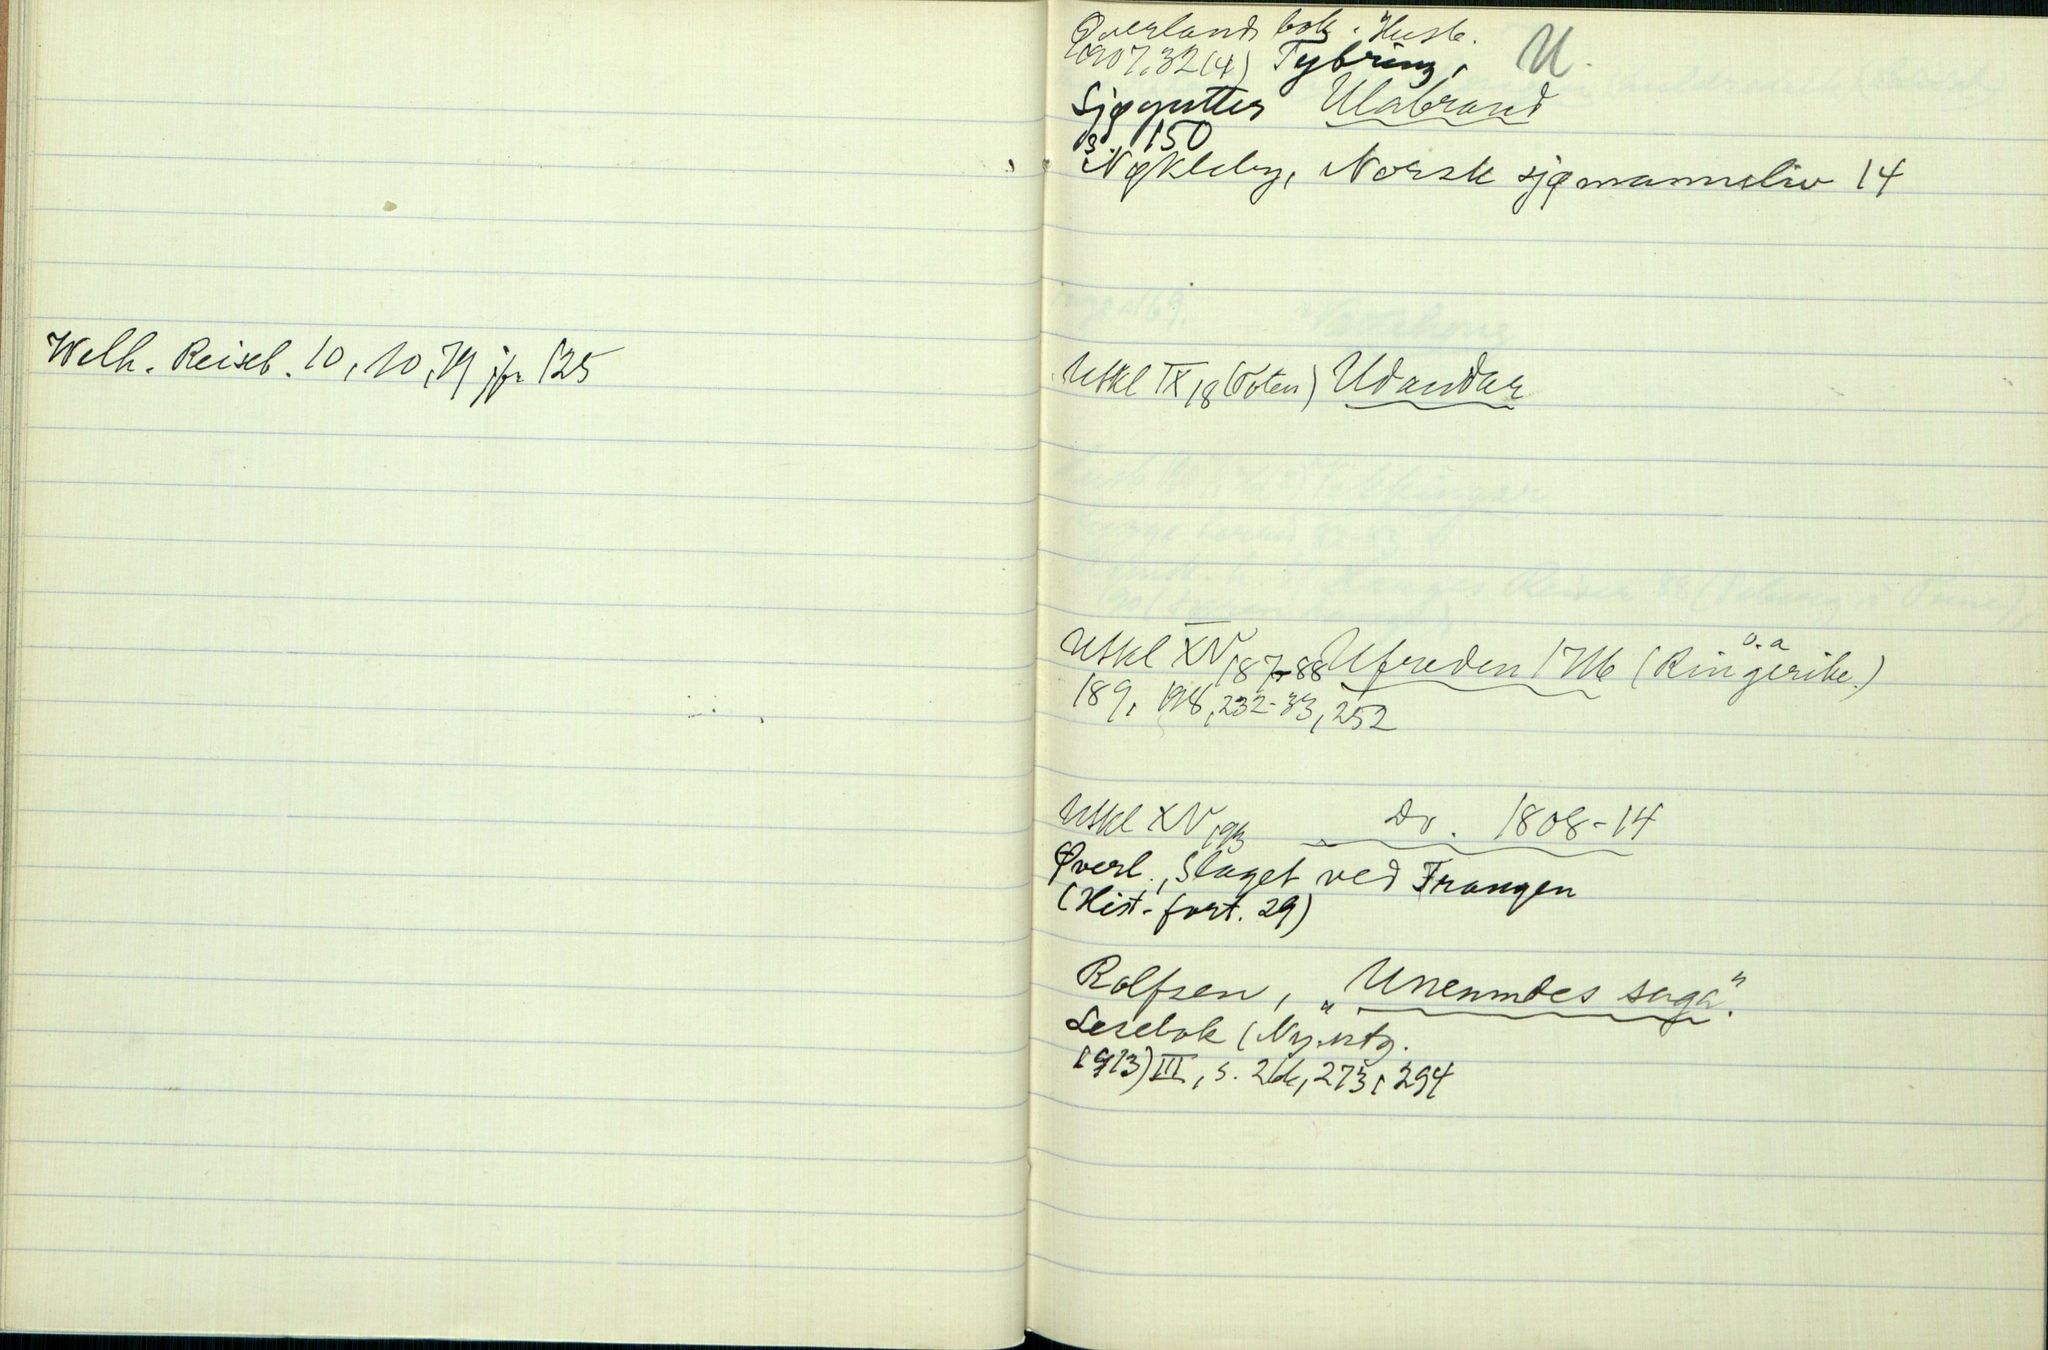 Welh. Reiseb. 10, 10, 79 jfr 125
Øverlands bok. Husb.
1907, 32 (4) Tybring, U.
Sjøgutter Ulabrand
s. 150
Nøkleby, Norsk sjømannsliv 14
Utskl IX 18 (Toten) Udandar
Utskl XV 187-88 Ufreden 1716 (Ringerike o.a.)
189, 198, 232-33, 252
Utskl XV 193 Do. 1808-14
Øverl., Slaget ved Trangen
(Hist.-fort. 29)
Rolfsen, „Unenmdes saga".
Lesebok (Ny.utg.
1913) III, s. 273, 294